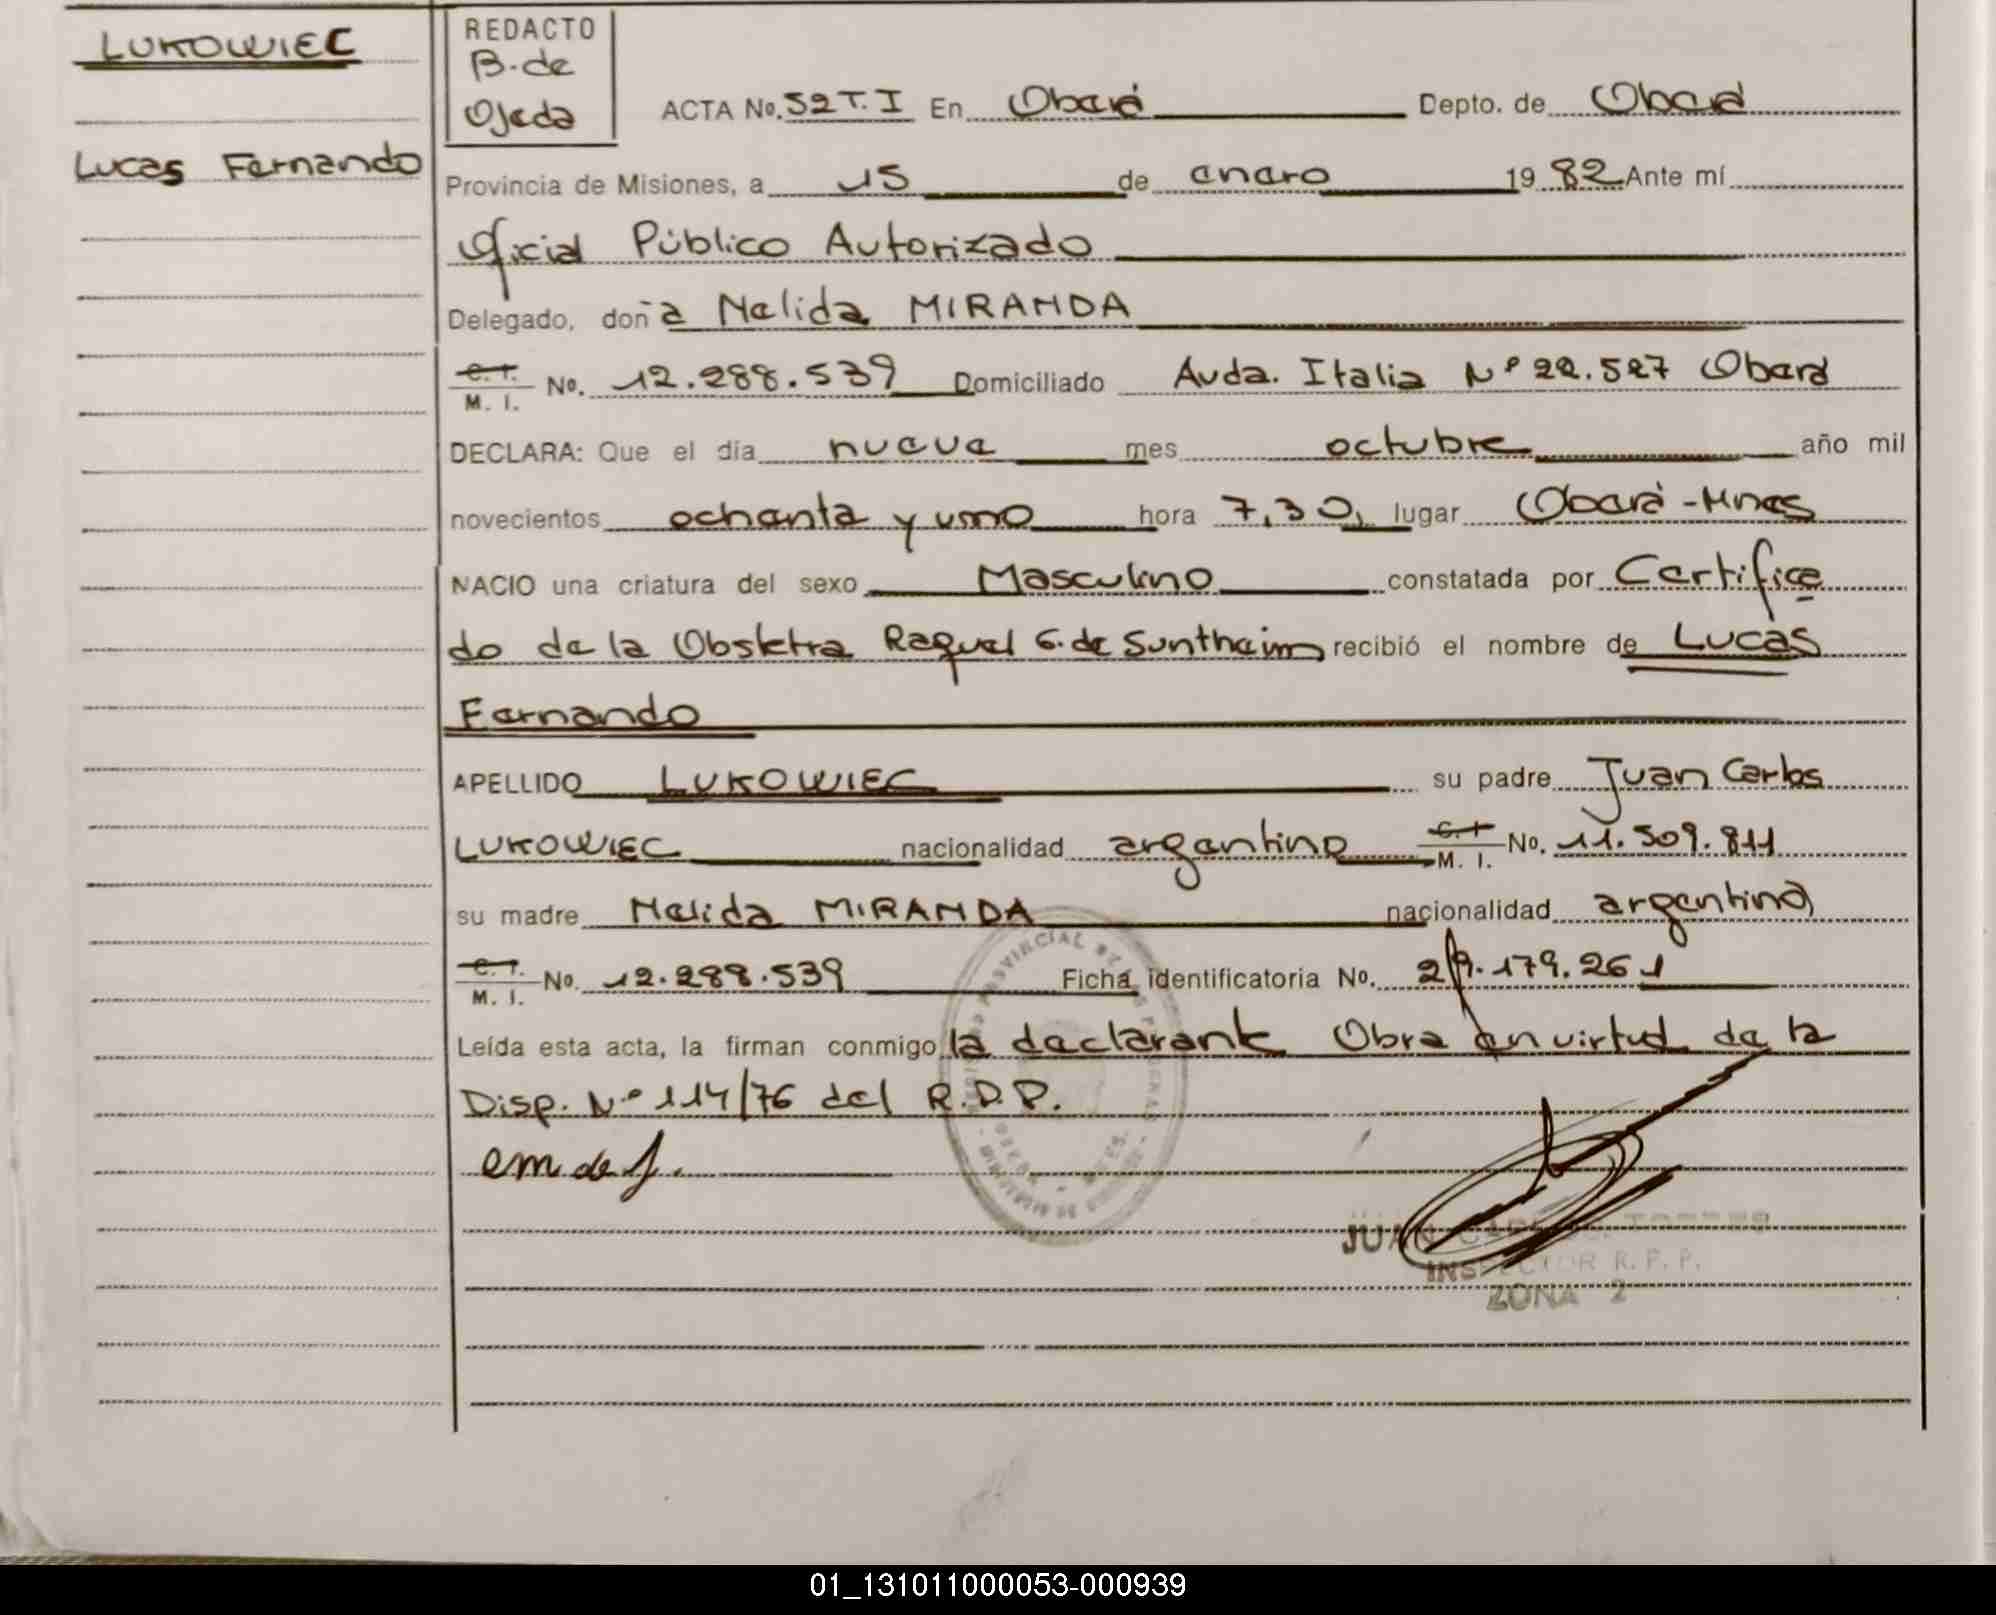 LUKOWIEC
Lucas Fernando
REDACTO
B. de
Ojeda
ACTA No. 52 T. I En Oberá Depto. de Oberá
Provincia de Misiones, a 15 de enero 19 82 Ante mí
Oficial Público Autorizado
Delegado, doña Nelida MIRANDA
C. I.
M. I. No. 12.288.539 Domiciliado Avda. Italia Nº 22.527 Oberá
DECLARA: Que el día nueve mes octubre año mil
novecientos ochenta y uno hora 7,30, lugar Oberá - Mnes
NACIO una criatura del sexo Masculino constatada por Certifica
do de la Obstetra Raquel G. de Suntheim recibió el nombre de Lucas
Fernando
APELLIDO LUKOWIEC su padre Juan Carlos
LUKOWIEC nacionalidad argentino C. I.
M. I. No. 11.509.811
su madre Nelida MIRANDA nacionalidad argentina
C. I.
M. I. No. 12.288.539 Ficha identificatoria No. 29.179.261
Leída esta acta, la firman conmigo la declarante Obra en virtud de la
Disp. Nº 114/76 del R.D.P.
em de f.
JUAN CARLOS TORRES
INSPECTOR R. P. P.
ZONA 2
01_131011000053-000939